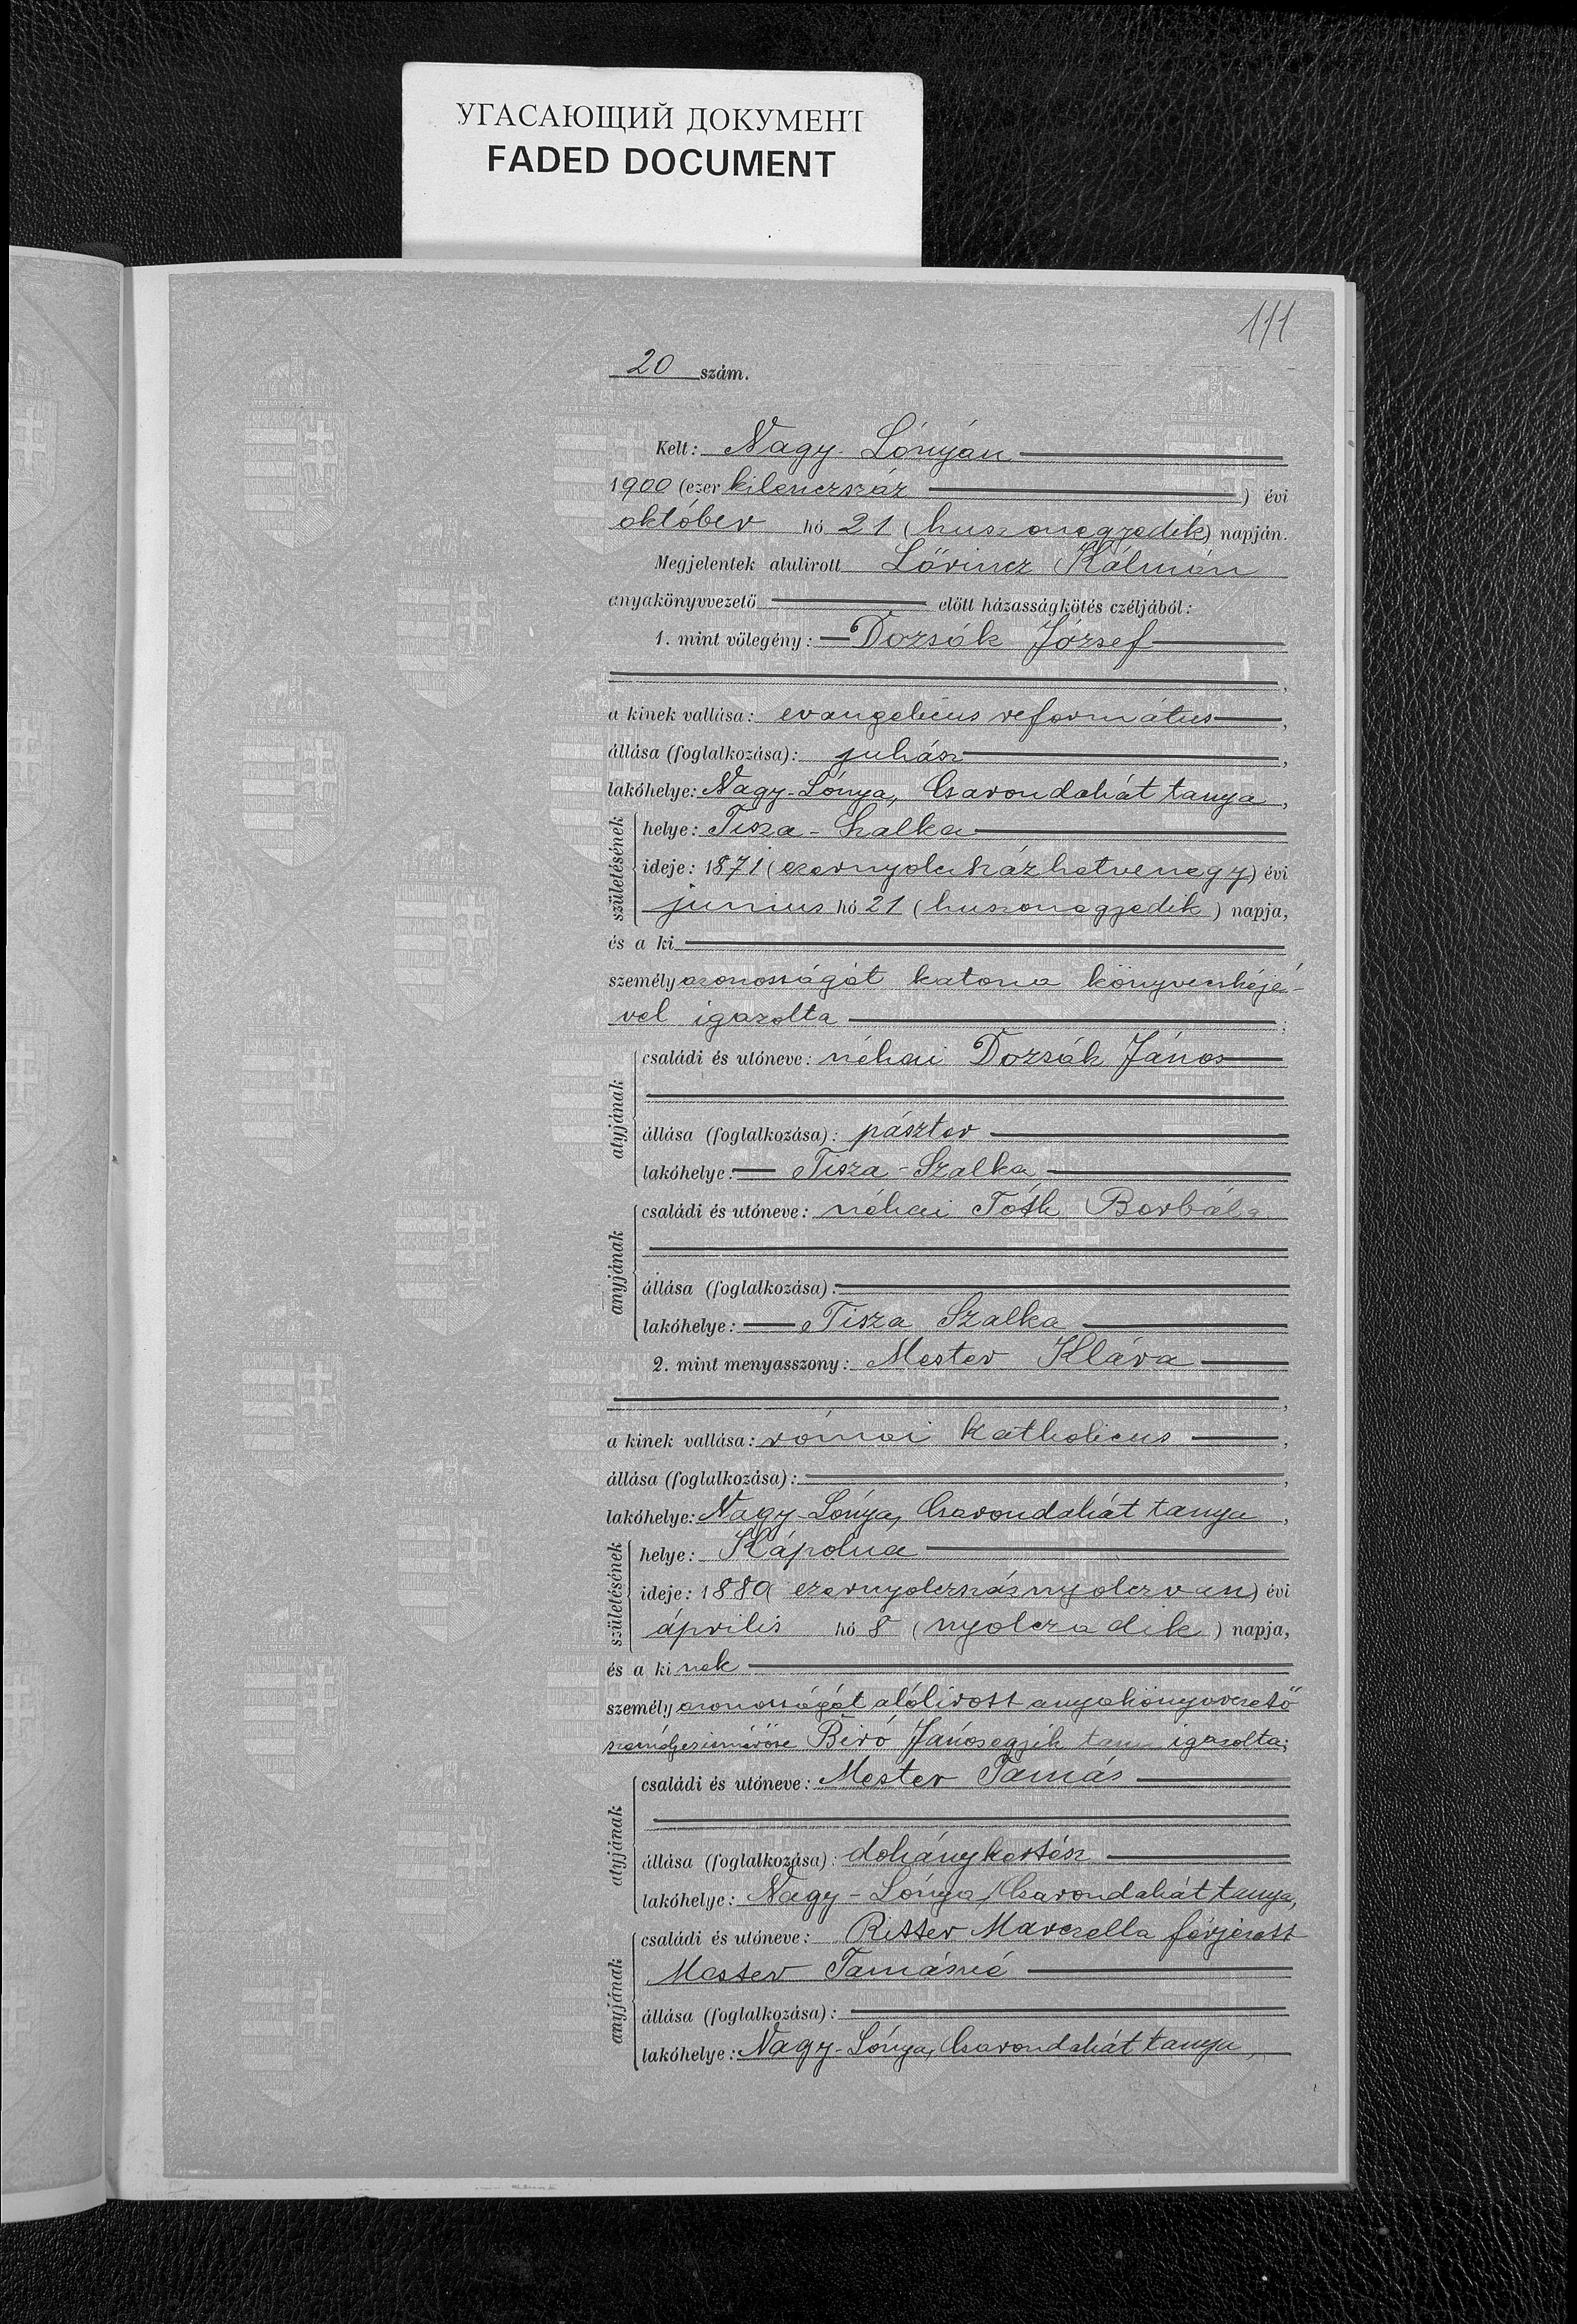 УГАСАЮЩИЙ ДОКУМЕНТ
FADED DOCUMENT
111
20 szám.
Kelt: Nagy-Lónyán
1900 (ezer kilenczszáz) évi
október hó 21 (huszonegyedik) napján.
Megjelentek alulirott Lőrincz Kálmán
anyakönyvvezető előtt házasságkötés czéljából:
1. mint vőlegény: Dozsák József
a kinek vallása: evangelicus református,
állása (foglalkozása): juhász,
lakóhelye: Nagy-Lónya, Csarondahát tanya,
születésének
helye: Tisza-Szalka
ideje: 1871 (ezernyolczszázhetvenegy) évi
junius hó 21 (huszonegyedik) napja,
és a ki
személyazonosságát katona könyvecskéjé-
vel igazolta;
atyjának
családi és utóneve: néhai Dozsák János
állása (foglalkozása): pásztor
lakóhelye: Tisza-Szalka
anyjának
családi és utóneve: néhai Tóth Borbála
állása (foglalkozása):
lakóhelye: Tisza Szalka
2. mint menyasszony: Mester Klára,
a kinek vallása: római katholicus,
állása (foglalkozása):,
lakóhelye: Nagy-Lónya, Csarondahát tanya,
születésének
helye: Kápolna
ideje: 1880 (ezernyolczszáznyolczvan) évi
április hó 8 (nyolczadik) napja,
és a kinek
személyazonosságát alólirott anyakönyvvezető
személyesismerőse Biró János egyik tanu igazolta;
atyjának
családi és utóneve: Mester Tamás
állása (foglalkozása): dohánykertész
lakóhelye: Nagy-Lónya, Csarondahát tanya,
anyjának
családi és utóneve: Ritter Marczella férjezett
Mester Tamásné
állása (foglalkozása):
lakóhelye: Nagy-Lónya, Csarondahát tanya,